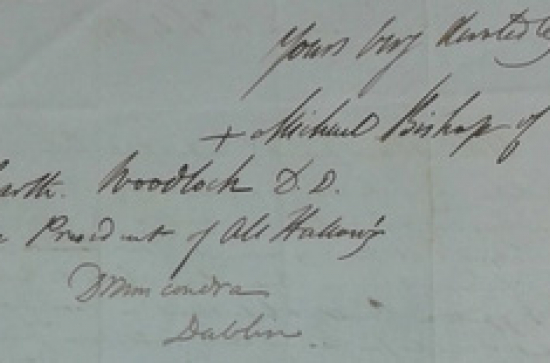 Yours very devotedly
+ Michael Bishop of
Barth. Woodlock D.D.
President of All Hallow's
Drumcondra
Dublin.